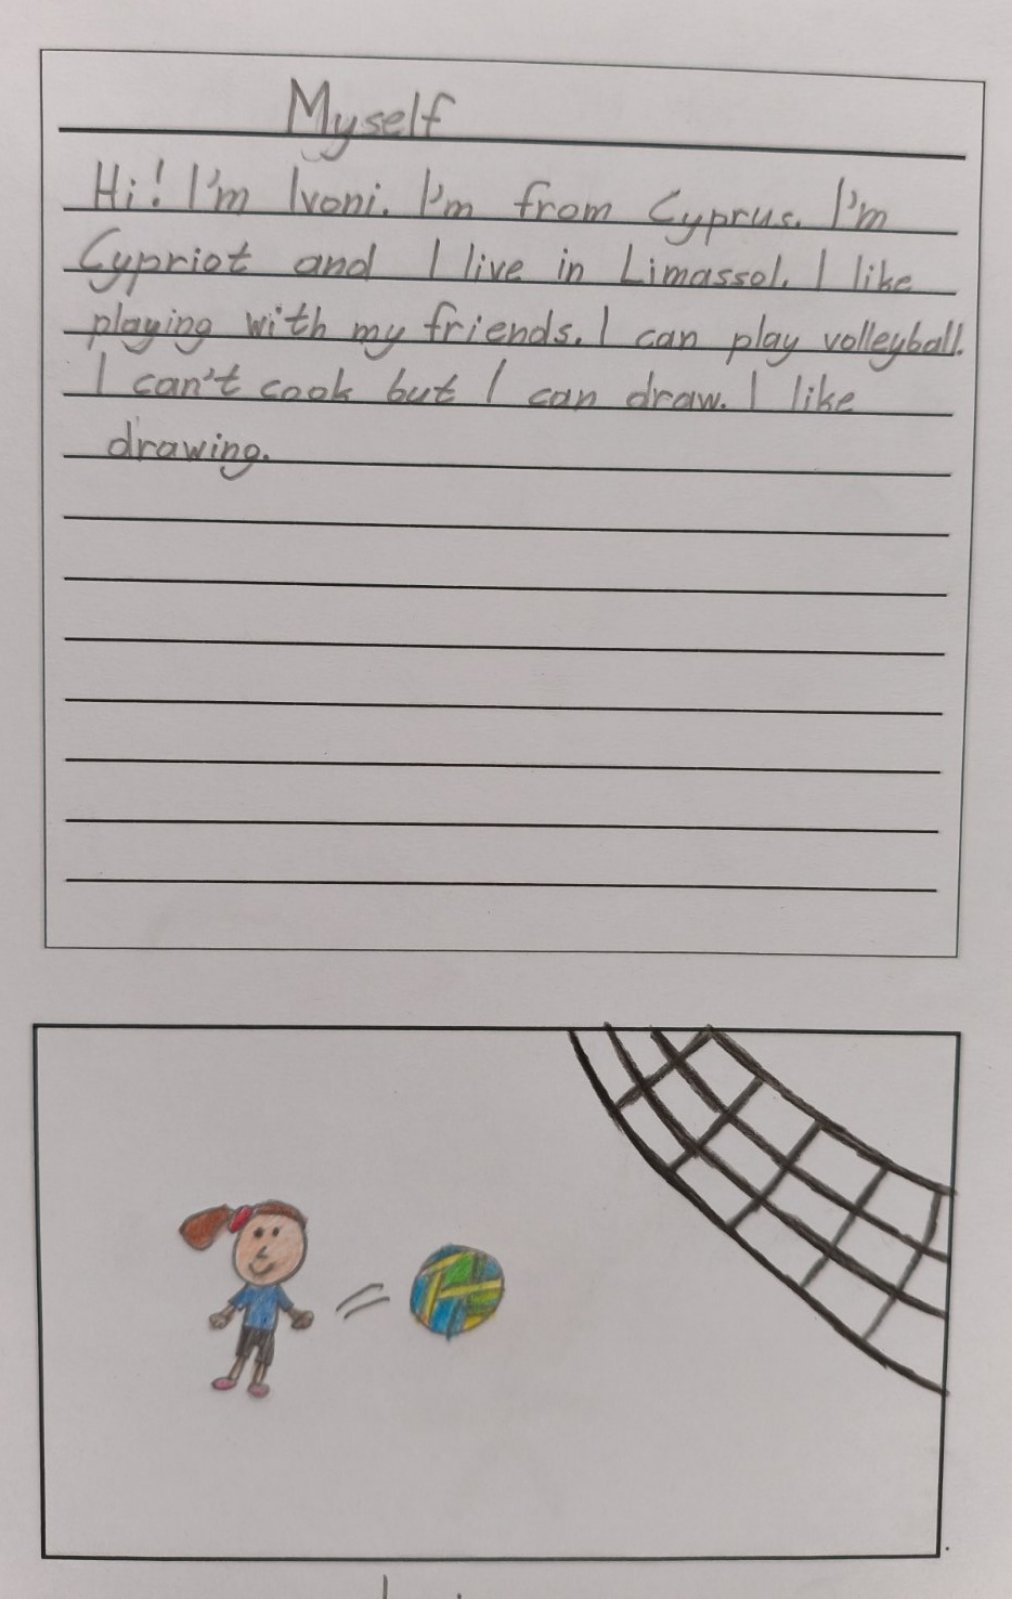 Myself
Hi! I'm Ivoni. I'm from Cyprus. I'm
Cypriot and I live in Limassol. I like
playing with my friends. I can play volleyball.
I can't cook but I can draw. I like
drawing.